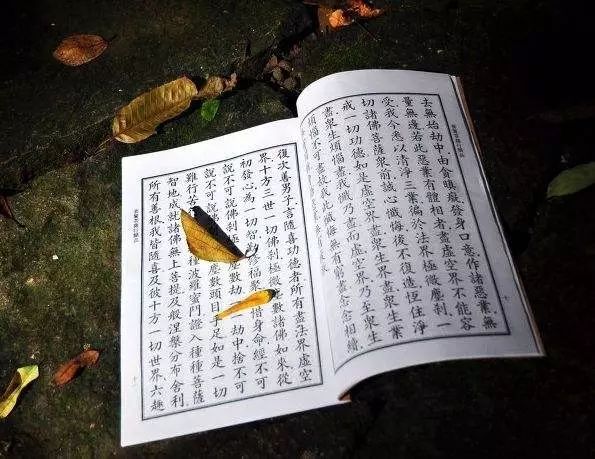 去無始劫中由貪瞋癡發身口意作諸惡業無
量無邊若此惡業有體相者盡虛空界不能容
受我今悉以清淨三業徧於法界極微塵剎一
切諸佛菩薩眾前誠心懺悔後不復造恆住淨
戒一切功德如是虛空界盡眾生界盡眾生業
盡眾生煩惱盡我懺乃盡而虛空界乃至眾生
煩惱不可盡故我此懺悔無有窮盡念念相續
復次善男子言隨喜功德者所有盡法界虛空
界十方三世一切佛剎極微塵數諸佛如來從
初發心為一切智修福聚不惜身命經不可
說不可說佛剎極塵數劫一劫中捨不可
說不可說佛塵數頭目手足如是一切
難行苦種波羅蜜門證入種種菩薩
智地成就諸佛無上菩提及般涅槃分布舍利
所有善根我皆隨喜及彼十方一切世界六趣